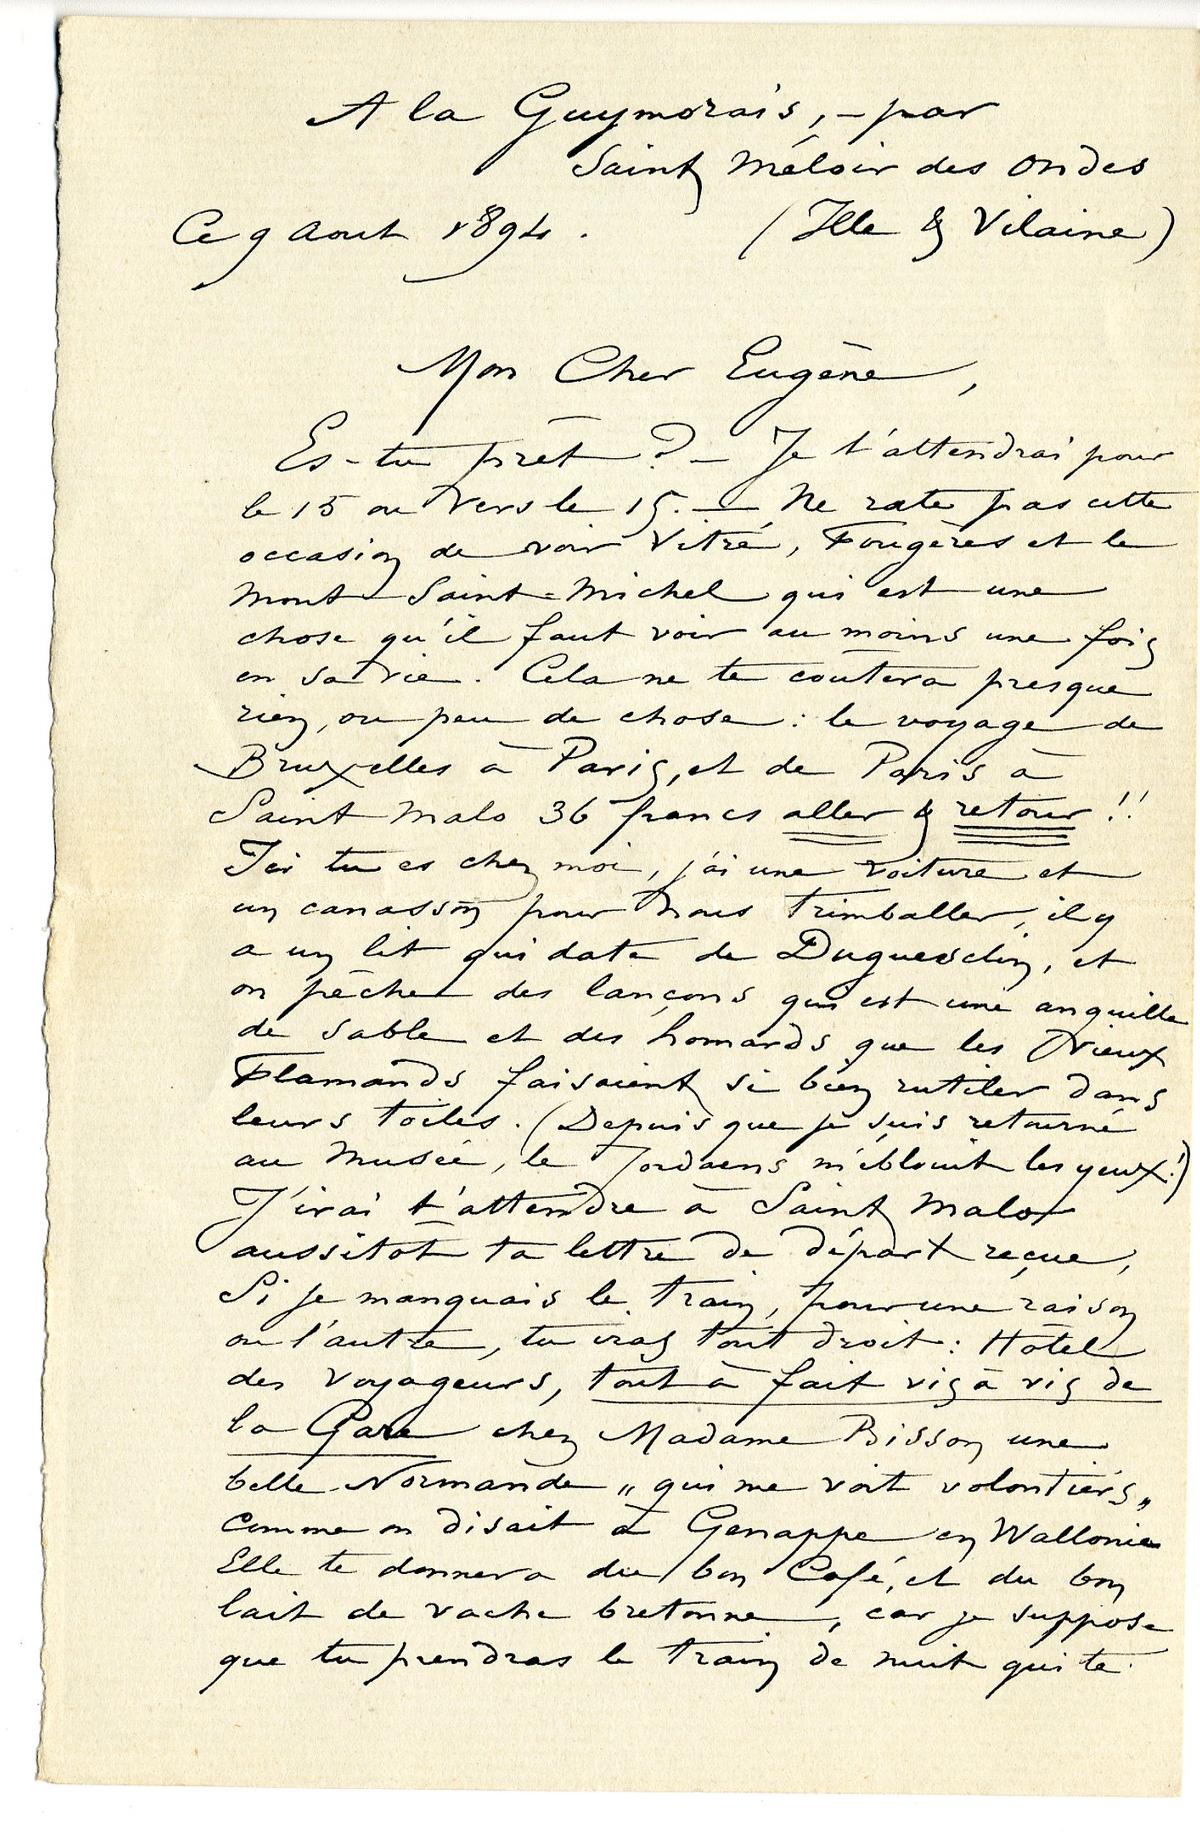 A la Guymorais, – par
Saint Méloir des Ondes
Ce 9 Aout 1894. (Ille & Vilaine)
Mon Cher Eugène,
Es-tu prêt ? – Je t'attendrai pour
le 15 ou vers le 15. – Ne rate pas cette
occasion de voir Vitré, Fougères et le
Mont Saint-Michel qui est une
chose qu'il faut voir au moins une fois
en sa vie. Cela ne te coûtera presque
rien, ou peu de chose : le voyage de
Bruxelles à Paris, et de Paris à
Saint Malo 36 francs aller & retour !!
Ici tu es chez moi, j'ai une voiture et
un canasson pour nous trimballer, il y
a un lit qui date de Duguesclin, et
on pêche des lançons qui est une anguille
de sable et des homards que les Vieux
Flamands faisaient si bien rutiler dans
leurs toiles. (Depuis que je suis retourné
au Musée, le Jordaens m'éblouit les yeux !)
J'irai t'attendre à Saint Malo
aussitôt ta lettre de départ reçue,
Si je manquais le train, pour une raison
ou l'autre, tu iras tout droit : Hôtel
des Voyageurs, tout à fait vis à vis de
la Gare chez Madame Bisson une
belle Normande „ qui me voit volontiers „
comme on disait à Genappe en Wallonie
Elle te donnera du bon Café, et du bon
lait de vache bretonne, car je suppose
que tu prendras le train de nuit qui te